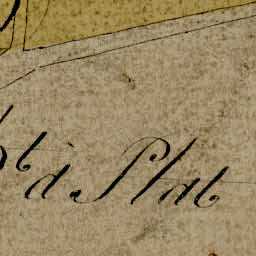 à Plat